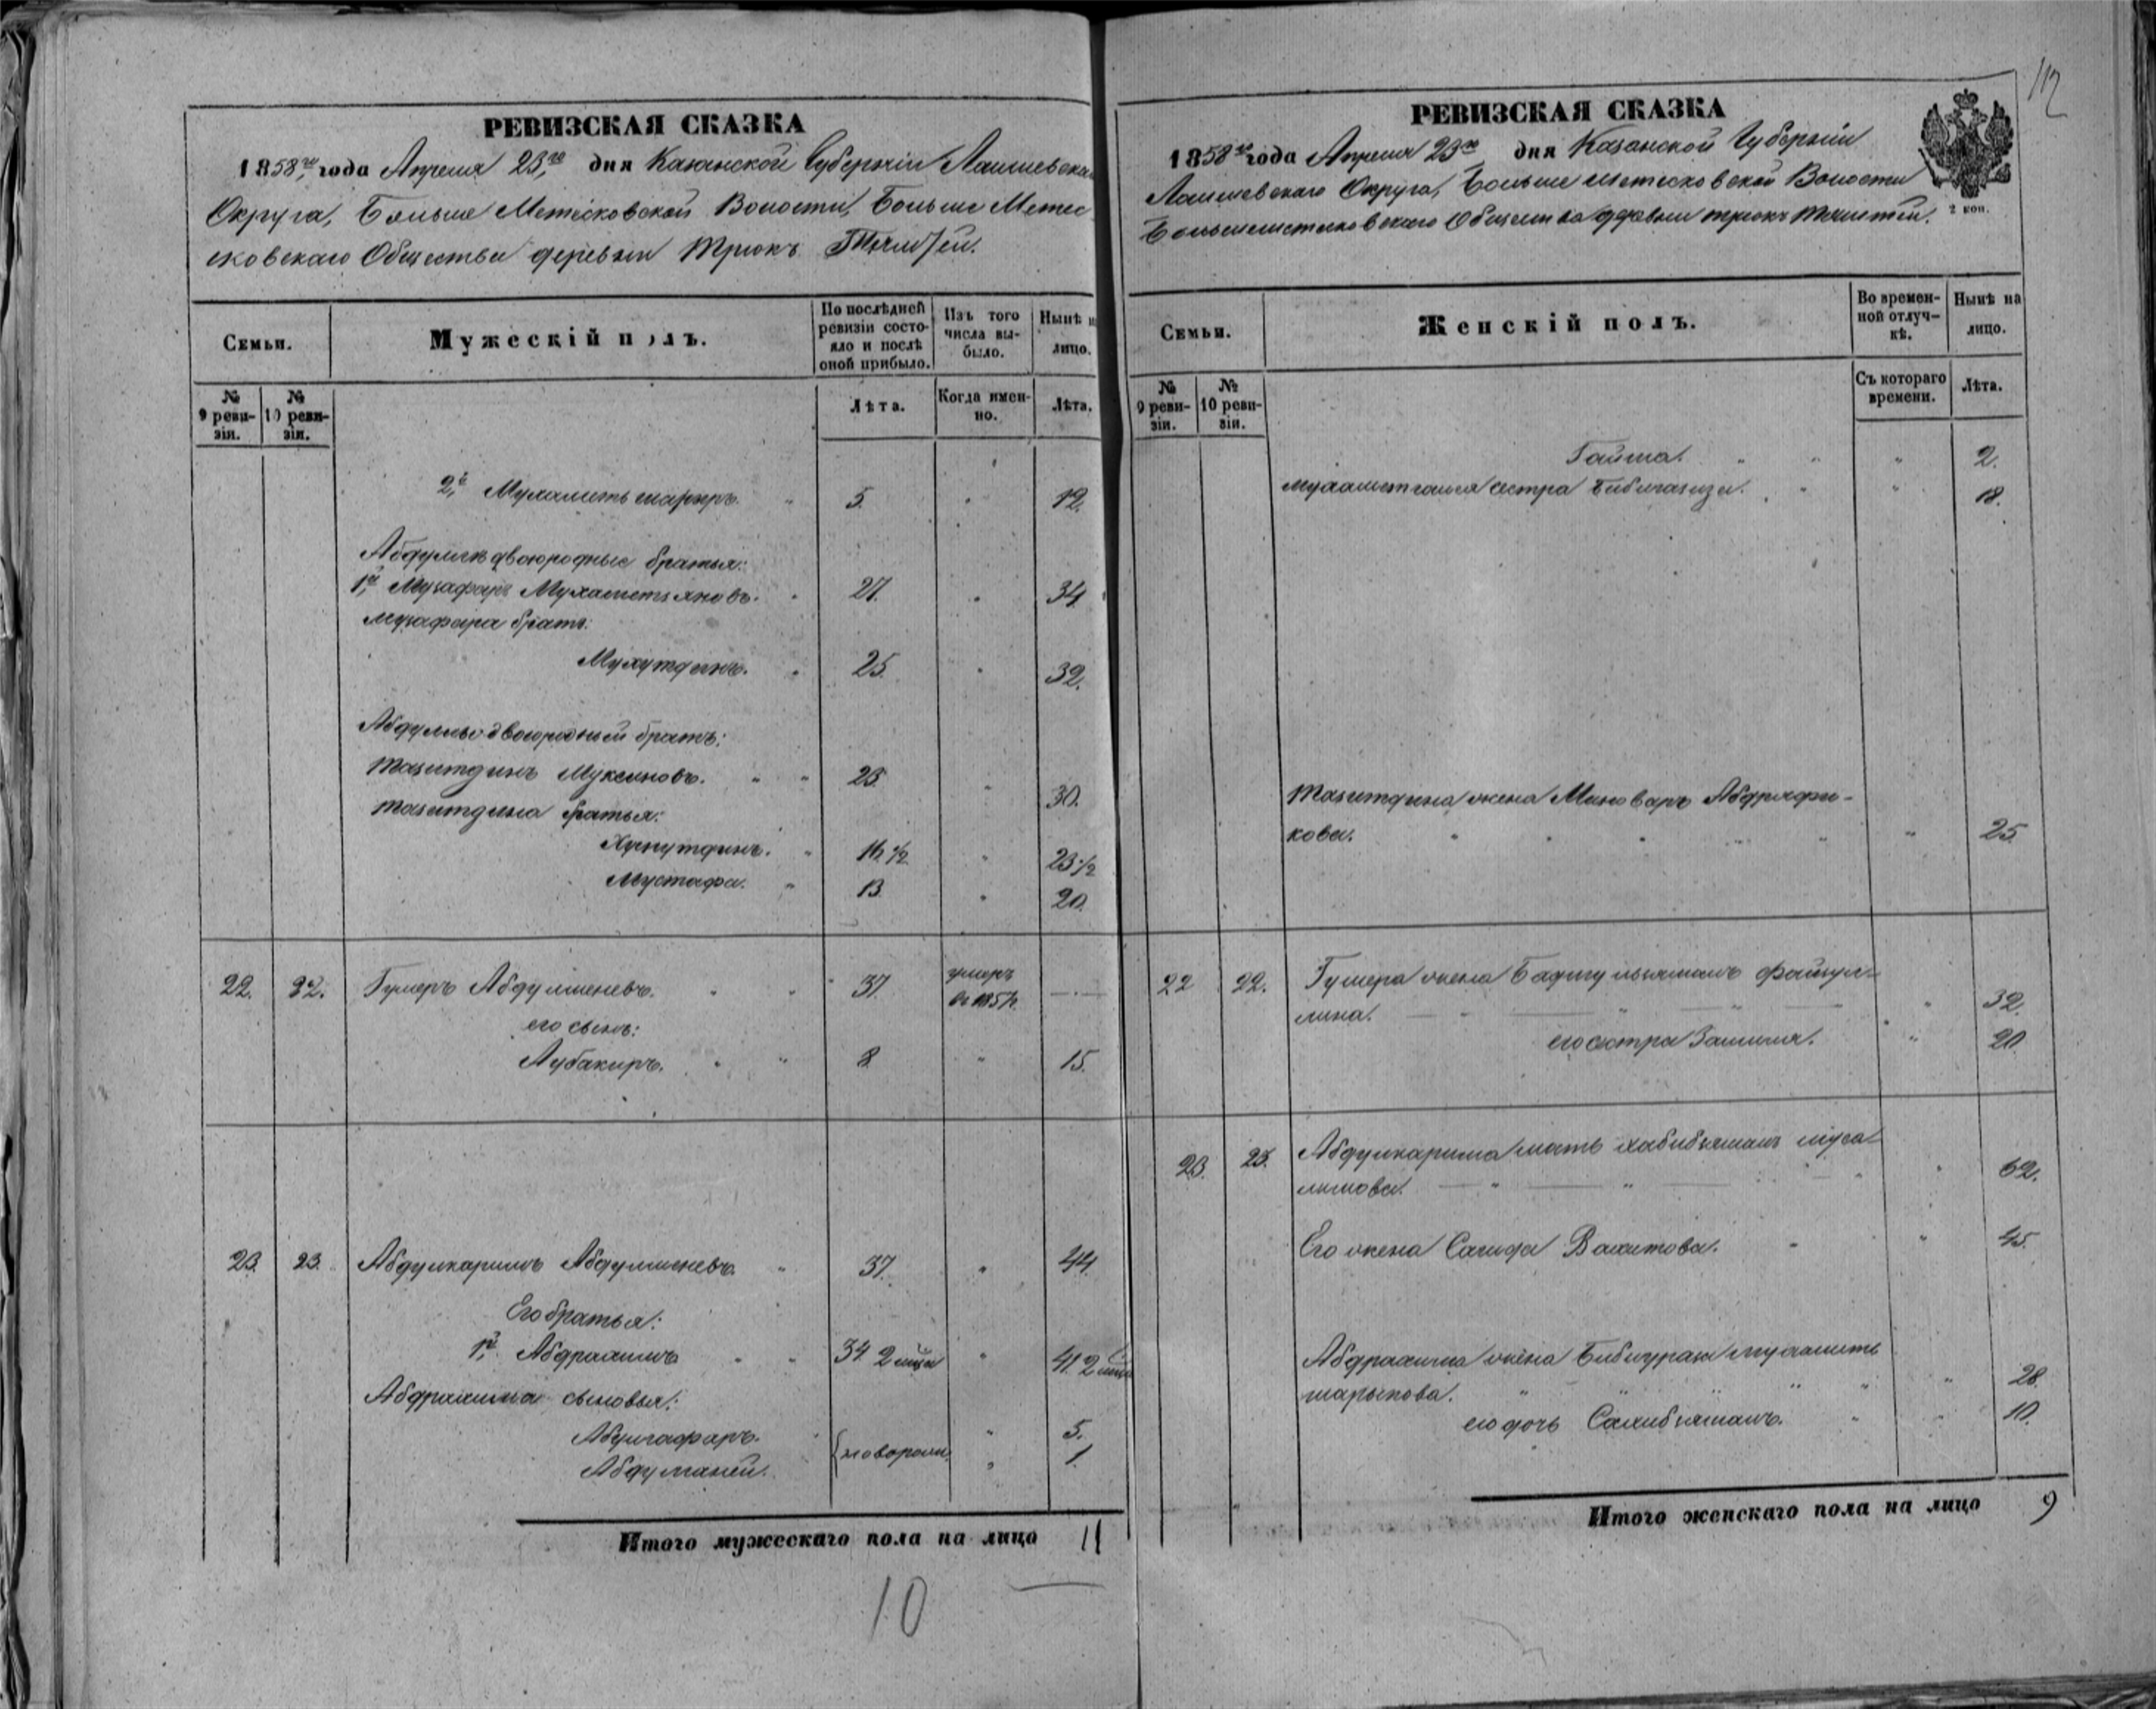 112
РЕВИЗСКАЯ СКАЗКА
1858го года Апреля 23го дня Казанской Губерніи Лаишевскаго
Округа, Больше Метесковской Волости, Больше Метес
ковскаго Общества деревни Трюкъ
Семьи.
Мужескій полъ.
По послѣдней ревизіи состояло и послѣ оной прибыло.
Изъ того числа выбыло.
Нынѣ на лицо.
№ 9 ревизіи.
№ 10 ревизіи.
Лѣта.
Когда именно.
Лѣта.
2й Мухаметь " 5. " 12.
Абдулки двоюродные братья:
1й Музафаръ Мухаметзяновъ. " 27. " 34.
Музафара братъ:
Мухутдинъ. " 25. " 32.
двоюродный братъ:
Тазитдинъ Муксиновъ. " " 23. " 30.
Тазитдина братья:
Хуснутдинъ. " 16 1/2 " 23 1/2
Мустафа. " 13 " 20.
22. 22. Гумеръ Абдулменевъ. " " 37. умеръ —
его сынъ:
Аубакиръ. " " 8 " 15.
23. 23. Абдулкаримъ Абдулменевъ. " 37. " 44.
Его братья:
1й Абдрахимъ " " 34. 2 " 41. 2
Абдрахима сыновья:
Абулгафаръ. " 5.
Абдулганей. новорожд " 1.
Итого мужескаго пола на лицо 11
10
РЕВИЗСКАЯ СКАЗКА
1858го года Апреля 23го дня Казанской Губерніи
Лаишевскаго Округа, Больше Метесковской Волости
Большеметесковскаго Общества деревни Трюкъ
2 коп.
Семьи.
Женскій полъ.
Во временной отлучкѣ.
Нынѣ на лицо.
№ 9 ревизіи.
№ 10 ревизіи.
Съ котораго времени.
Лѣта.
Гайша. " " " 2.
сестра " " 18.
Тазитдина жена Миновара Абдрафи-
кова. " " " " " 25.
22 22. Гумера жена Файзул-
лина. — " — " — " 32.
его сестра " 20.
23. 23. Абдулкарима мать Хабибзямалъ
— " — " — " 62.
Его жена Сагида Вахитова. " " 45.
Абдрахима жена Мухаметь
шарыпова. " " " " " " 28.
его дочь Сахибзямалъ. " " 10.
Итого женскаго пола на лицо 9